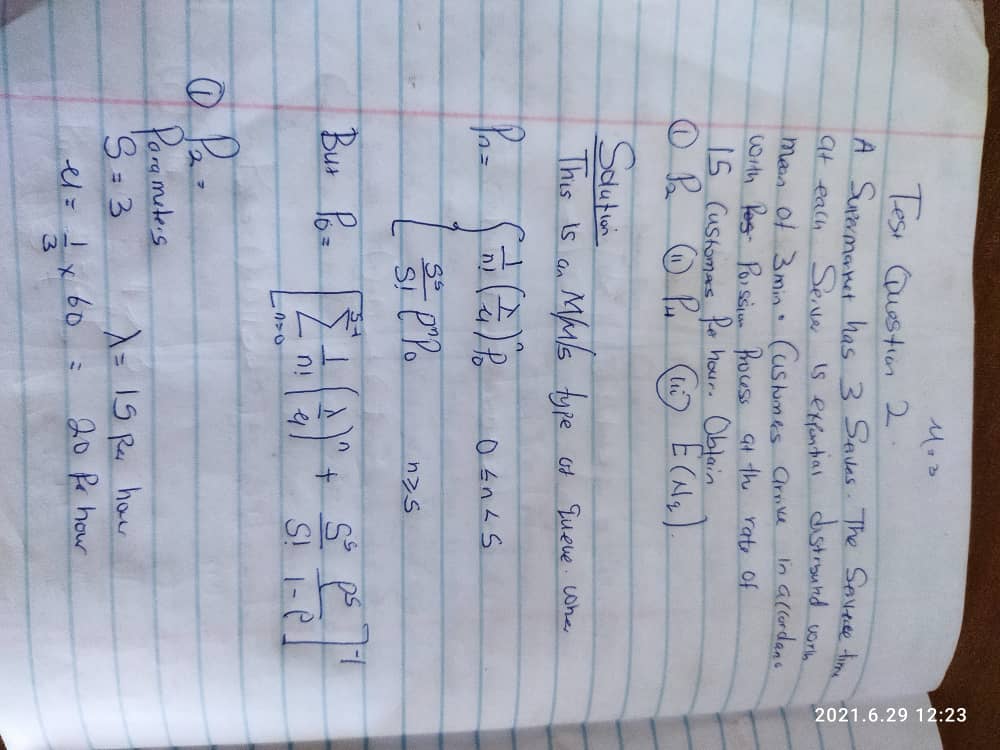 M=3
Test Question 2.
A Supermarket has 3 Serves. The Service time
at each Server is expontial distribund with
mean of 3min. Customes arrive in accordanc
with Pos- Poission Process at the rate of
15 Customers Per hour. Obtain
(i) P₂ (ii) P₄ (iii) E(Nq).
Solution
This is an M/M/s type of queue. wher
Pn = { 1/n! (λ/μ)ⁿ P₀ 0 ≤ n < S
S^s/S! ρⁿ P₀ n ≥ s
But P₀ = [ Σ_{n=0}^{s-1} 1/n! (λ/μ)ⁿ + S^s/S! ρ^s/(1-ρ) ]⁻¹
(i) P₂ =
Parameters
S = 3 λ = 15 Per hour
μ = 1/3 × 60 = 20 Per hour
2021.6.29 12:23